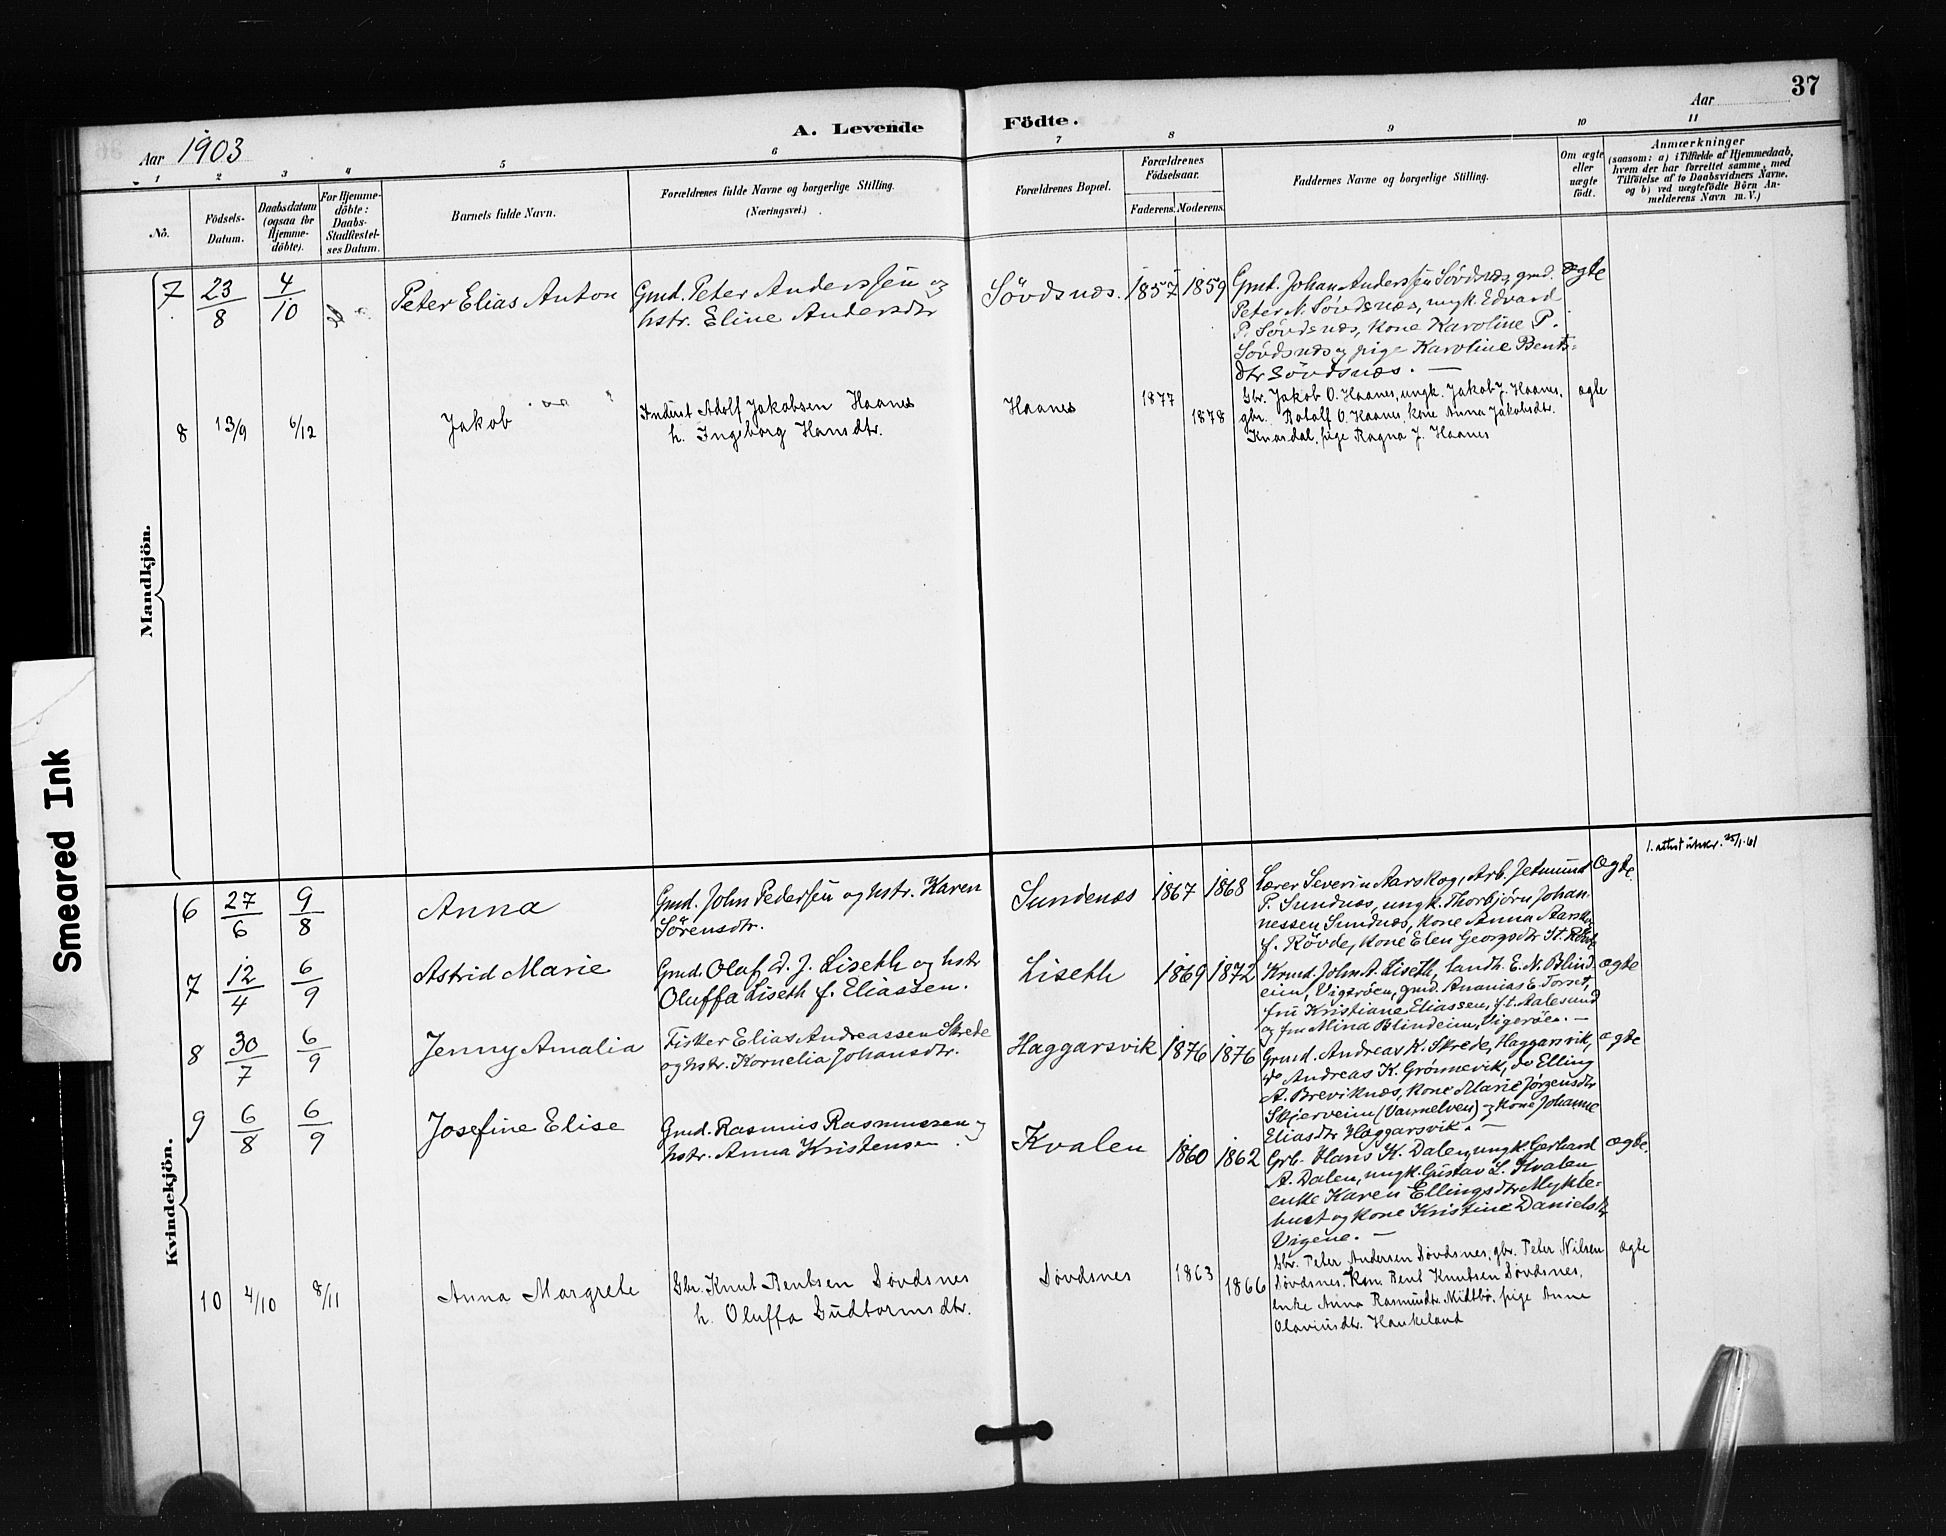 37
Aar
A. Levende Födte.
Aar 1903
1 2 3 4 5 6 7 8 9 10 11
Nö.
Födsels-
Datum.
Daabsdatum
(ogsaa for
Hjemme-
döbte).
For Hjemme-
döbte:
Daabs-
Stadfæstel-
ses Datum.
Barnets fulde Navn.
Forældrenes fulde Navne og borgerlige Stilling.
(Næringsvei.)
Forældrenes Bopæl.
Forældrenes
Födselsaar.
Faderens. Moderens.
Faddernes Navne og borgerlige Stilling.
Om ægte
eller
uægte
født.
Anmærkninger
(saasom: a) i Tilfælde af Hjemmedaab,
hvem der har forrettet samme, med
Tilföielse af to Daabsvidners Navne,
og b) ved uægtefödte Börn An-
melderens Navn m. V.)
Mandkjön.
7
23/8
4/10
Peter Elias Anton
Gmd. Peter Anderssen og
hstr. Eline Andersdtr
Søvdsnæs.
1857
1859
Gmd. Johan Anderssen Søvdsnæs, gmd.
Peter N. Søvdsnæs, ungk. Edvard
P. Søvdsnæs, kone Karoline P.
Søvdsnæs og pige Karoline Bents-
dtr Søvdsnæs. —
ægte
8
13/9
6/12
Jakob
Inderst Adolf Jakobsen Haanes
h. Ingeborg Hansdtr.
Haanes
1877
1878
Gbr. Jakob O. Haanes, ungk. Jakob J. Haanes,
gbr. Botolf O. Haanes, kone Anna Jakobsdtr.
Knardal, pige Ragna J. Haanes
ægte
Smeared Ink
Kvindekjön.
6
27/6
9/8
Anna
Gmd. John Pederssen og hstr. Karen
Sörensdtr.
Sundenæs
1867
1868
Lærer Severin Aarskog, Arb. Jetmund
P. Sundnæs, ungk. Thorbjørn Johan-
nessen Sundnæs, kone Anna Aarskog
f. Røvde, kone Elen Georgsdtr
Ægte.
1. attest utskr. 25/1.61
7
12/4
6/9
Astrid Marie
Gmd. Olaf d. J. Liseth og hstr
Oluffa Liseth f. Eliassen.
Liseth
1869
1872
John A. Liseth, landh. E. N. Blind-
eim, Vigerøen, gmd. Ananias E. Torset,
fru Kristiane Eliassen, f.t. Aalesund
og fru Mina Blindeim, Vigerøen. —
ægte
8
30/7
6/9
Jenny Amalia
Fisker Elias Andreassen Skrede
og hstr. Kornelia Johansdtr.
Haggarsvik
1876
1876
Grmd. Andreas K. Skrede, Haggarsvik,
do Andreas K. Grönnevik, do Elling
A. Breviknæs, kone Marie Jørgensdtr
Skjerveim (Vannelven) og kone Johanne
Eliasdtr Haggarsvik. —
ægte
9
6/8
6/9
Josefine Elise
Gmd. Rasmus Rasmussen og
hstr. Anna Kristensen.
Kvalen
1860
1862
Grb. Hans K. Dalen, ungk. Gerhard
A. Dalen, ungk. Gustav L. Kvalen
enke Karen Ellingsdtr Mykle-
bust og kone Kristine Danielsdtr
Vigene. —
ægte.
10
4/10
8/11
Anna Margrete
Gbr. Knut Bentsen Søvdsnes
h. Oluffa Gudtormsdtr.
Søvdsnes
1863
1866
Gbr. Peter Andersen Søvdsnes, gbr. Peter Nilsen
Søvdsnes, Bent Knutsen Søvdsnes,
enke Anna Rasmusdtr. Midtbø, pige Anne
Olaviusdtr. Haukeland
ægte